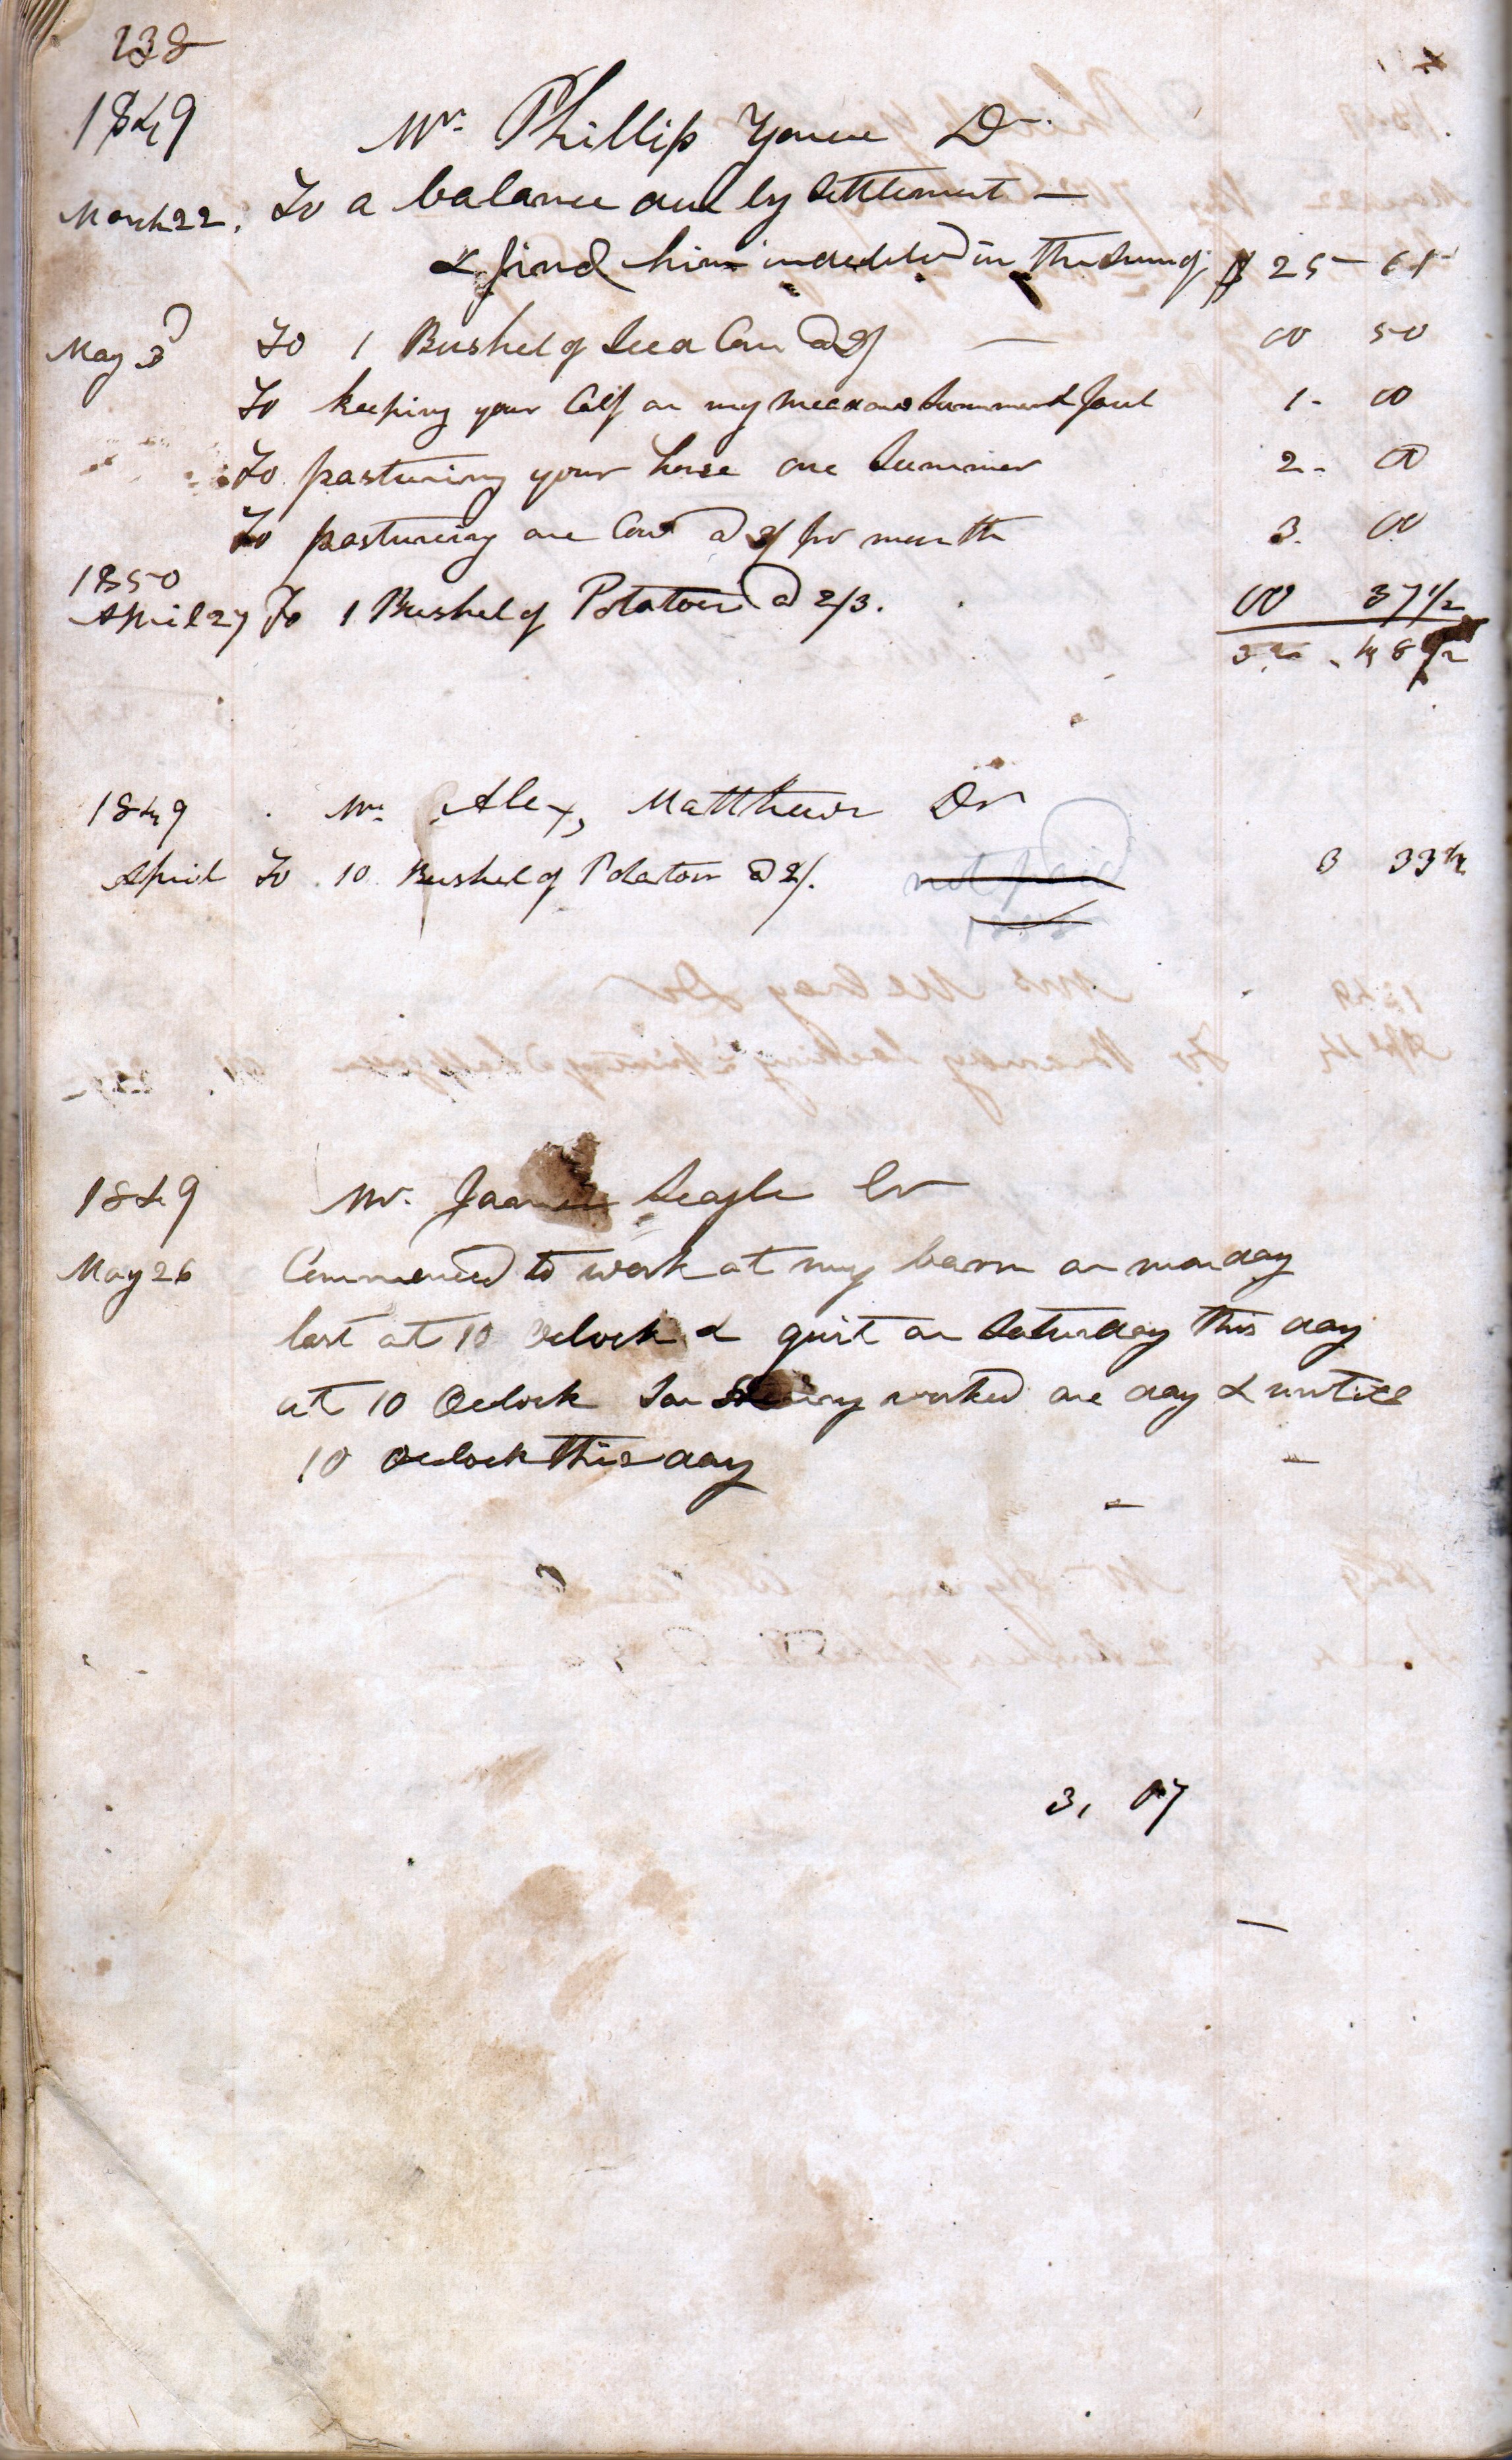 138
1849 Mr. Phillip Youce Dr.
March 22. To a balance due by Settlement —
& find him indebted in the Sum of $ 25 - 61
May 3d To 1 Bushel of Seed Corn @ 3/ — 00 50
To keeping your Calf on my meadow Summer & faul 1 - 00
To pasturing your horse one Summer 2 - 00
To pastureing one Cow @ 3/ pr month 3. 00
1850
April 27 To 1 Bushel of Potatoes @ 2/3. 00 37 1/2
32 . 48 1/2
1849 Mr. Alex, Matthews Dr
April To 10 Bushel of Potatoes @ 2/. not paid 3 33 1/4
1849 Mr. Seagle Cr
May 26 Commenced to work at my barn on monday
last at 10 Oclock & quit on Saturday this day
at 10 Oclock Son worked one day & untill
10 Oclock this day
3, 07